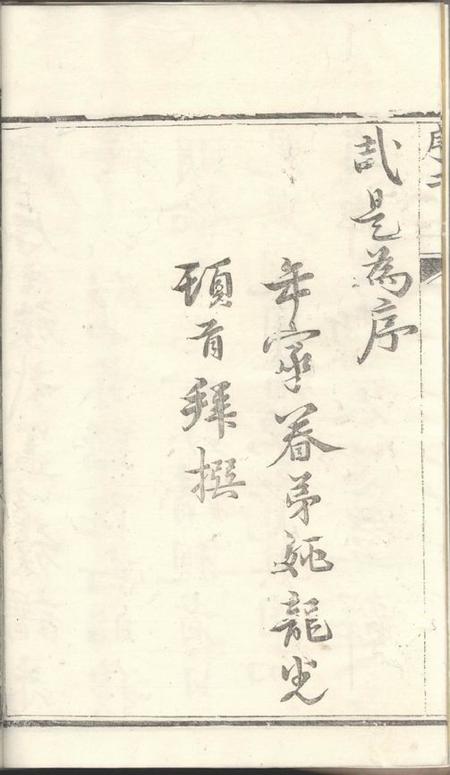 序二
哉是為序
年家眷弟姚龍光
頓首拜撰